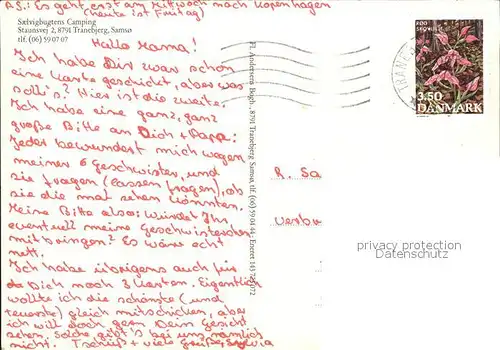 P.S.: Es geht erst am Mittwoch nach Kopenhagen
(heute ist Freitag)
Sælvigbugtens Camping
Staunsvej 2, 8791 Tranebjerg, Samsø
tlf. (06) 59 07 07
Hallo Mama!
Ich habe Dir zwar schon
eine Karte geschickt, aber was
soll's? Hier ist die zweite.
Ich habe eine ganz, ganz
große Bitte an Dich + Papa:
Jeder bewundert mich wegen
meiner 6 Geschwister, und
sie fragen (lassen fragen), ob
sie die mal sehen könnten.
Meine Bitte also: Würdet Ihr
eventuell meine Geschwisterchen
mitbringen? Es wäre echt
nett.
Ich habe übrigens auch für
Dich noch 3 Karten. Eigentlich
wollte ich die schönste (und
teuerste) gleich mitschicken, aber
ich will doch gern Dein Gesicht
sehen. Solche gibt's bei uns nämlich
nicht. Tschüß + viele Grüße, Sylvia
Fl. Andersens Bogh., 8791 Tranebjerg, Samsø, tlf. (06) 59 04 44 - Eneret
R. Sa
Verbu
3.50
DANMARK
privacy protection
Datenschutz